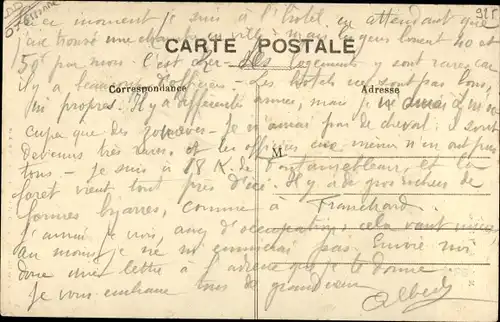 ce moment je suis à l'hôtel en attendant que
j'aie trouvé une chambre en ville mais les gens louent 40 et
CARTE POSTALE
50f par mois. C'est cher les logements y sont rares car
il y a beaucoup d'officiers. Les hôtels ne sont pas bons,
Correspondance
Adresse
ni propres. Il y a différentes armes, mais je m'oc
cupe que des zouaves. Je n'aurai pas de cheval : ils sont
devenus très rares, et les officiers eux mêmes n'en ont pas
M
tous - Je suis à 18 K. de Fontainebleau, et la
forêt vient tout près d'ici. Il y a de gros rochers de
formes bizarres, comme à Franchard.
J'aurai je crois d'occupation; cela vaut mieux
au moins je ne m'ennuierai pas. Envoie moi
donc une lettre à l'adresse que je te donne
Je vous embrasse tous de grand cœur
Albert